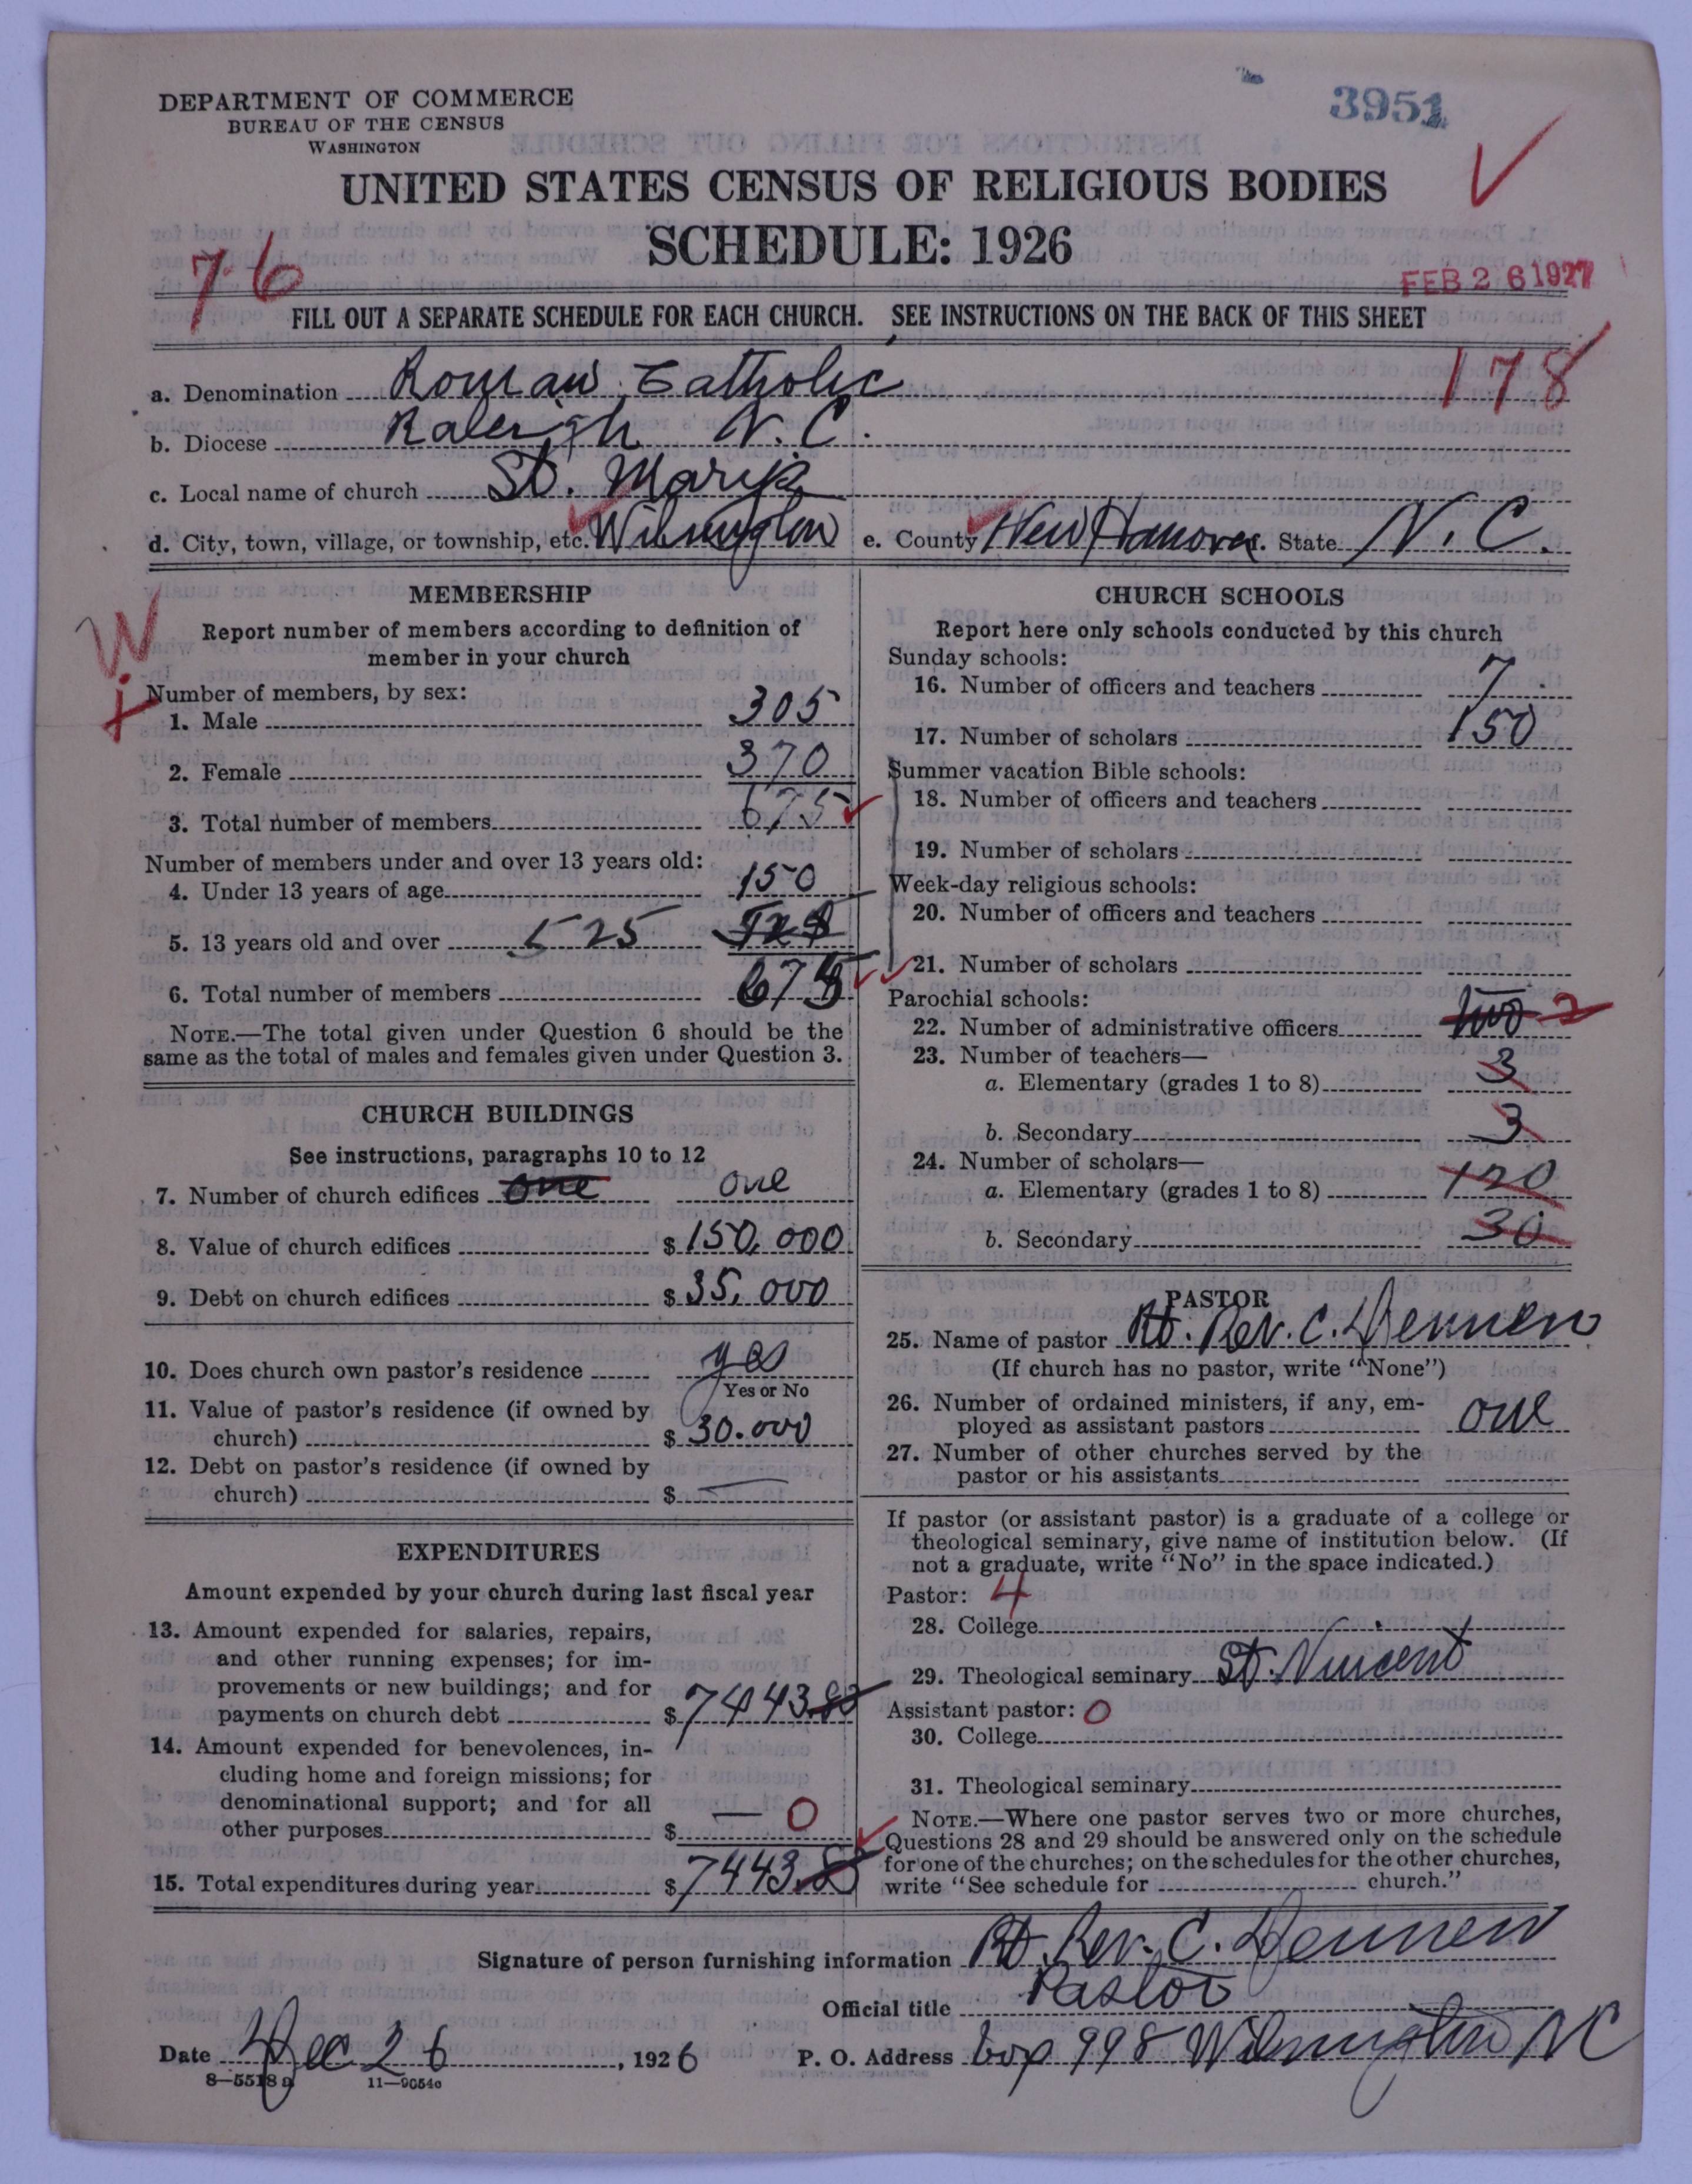 3951
DEPARTMENT OF COMMERCE
BUREAU OF THE CENSUS
WASHINGTON
UNITED STATES CENSUS OF RELIGIOUS BODIES
SCHEDULE: 1926
76
FEB 26 1927
FILL OUT A SEPARATE SCHEDULE FOR EACH CHURCH. SEE INSTRUCTIONS ON THE BACK OF THIS SHEET
178
a. Denomination Roman Catholic
b. Diocese Raleigh N. C.
c. Local name of church St. Mary's
d. City, town, village, or township, etc. Wilmington e. County New Hanover. State N. C.
W
MEMBERSHIP
Report number of members according to definition of
member in your church
Number of members, by sex:
1. Male 305
2. Female 370
3. Total number of members 675
Number of members under and over 13 years old:
4. Under 13 years of age 150
5. 13 years old and over 525
6. Total number of members 675
NOTE.—The total given under Question 6 should be the
same as the total of males and females given under Question 3.
CHURCH BUILDINGS
See instructions, paragraphs 10 to 12
7. Number of church edifices one one
8. Value of church edifices $ 150,000
9. Debt on church edifices $ 35,000
10. Does church own pastor's residence yes
Yes or No
11. Value of pastor's residence (if owned by
church) $ 30.000
12. Debt on pastor's residence (if owned by
church) $ —
EXPENDITURES
Amount expended by your church during last fiscal year
13. Amount expended for salaries, repairs,
and other running expenses; for im-
provements or new buildings; and for
payments on church debt $ 7443.80
14. Amount expended for benevolences, in-
cluding home and foreign missions; for
denominational support; and for all
other purposes $ — 0
15. Total expenditures during year $ 7443.8
CHURCH SCHOOLS
Report here only schools conducted by this church
Sunday schools:
16. Number of officers and teachers 7
17. Number of scholars 150
Summer vacation Bible schools:
18. Number of officers and teachers
19. Number of scholars
Week-day religious schools:
20. Number of officers and teachers
21. Number of scholars
Parochial schools:
22. Number of administrative officers two 2
23. Number of teachers—
a. Elementary (grades 1 to 8) 3
b. Secondary 3
24. Number of scholars—
a. Elementary (grades 1 to 8) 120
b. Secondary 30
PASTOR
25. Name of pastor Rt. Rev. C. Dennen
(If church has no pastor, write "None")
26. Number of ordained ministers, if any, em-
ployed as assistant pastors one
27. Number of other churches served by the
pastor or his assistants
If pastor (or assistant pastor) is a graduate of a college or
theological seminary, give name of institution below. (If
not a graduate, write "No" in the space indicated.)
Pastor: 4
28. College
29. Theological seminary St. Vincent
Assistant pastor: 0
30. College
31. Theological seminary
NOTE.—Where one pastor serves two or more churches,
Questions 28 and 29 should be answered only on the schedule
for one of the churches; on the schedules for the other churches,
write "See schedule for church."
Signature of person furnishing information Rt. Rev. C. Dennen
Official title Pastor
Date Dec 26, 1926 P. O. Address box 998 Wilmington NC
8—5518a 11—9054c